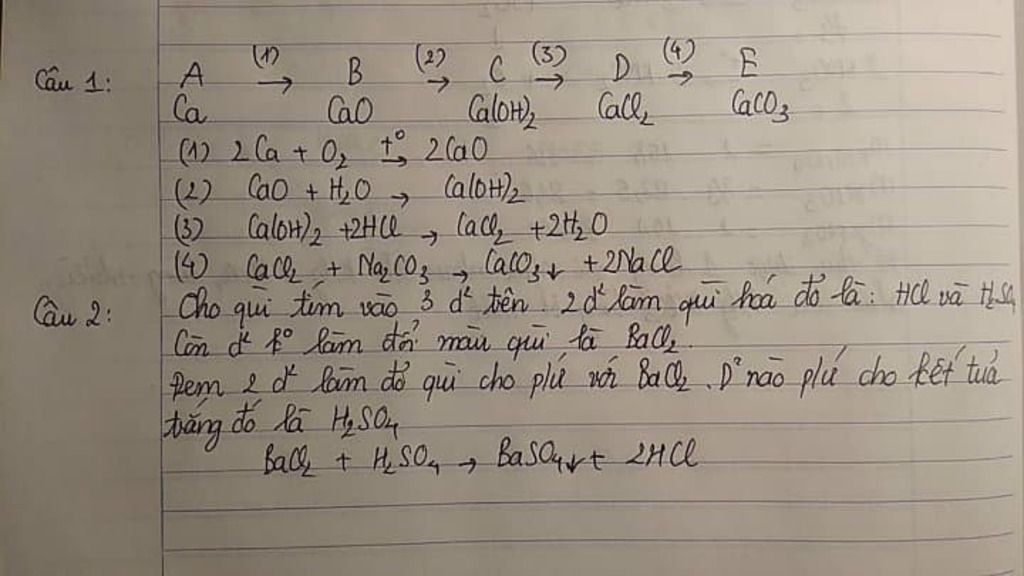 Câu 1: A (1)→ B (2)→ C (3)→ D (4)→ E
Ca CaO Ca(OH)₂ CaCl₂ CaCO₃
(1) 2Ca + O₂ t°→ 2CaO
(2) CaO + H₂O → Ca(OH)₂
(3) Ca(OH)₂ + 2HCl → CaCl₂ + 2H₂O
(4) CaCl₂ + Na₂CO₃ → CaCO₃↓ + 2NaCl
Câu 2: Cho quì tím vào 3 d² trên. 2 d² làm quì hoá đỏ là: HCl và H₂SO₄
Còn d² k° làm đổi màu quì là BaCl₂.
Đem 2 d² làm đỏ quì cho pứ với BaCl₂. D² nào pứ cho kết tủa
trắng đó là H₂SO₄
BaCl₂ + H₂SO₄ → BaSO₄↓ + 2HCl